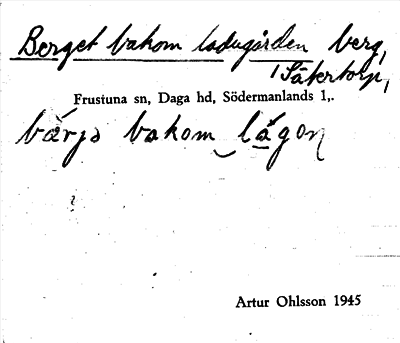 Berget bakom ladugården berg,
Sätertorp,
Frustuna sn, Daga hd, Södermanlands l,.
bärjə bakom lágon
Artur Ohlsson 1945